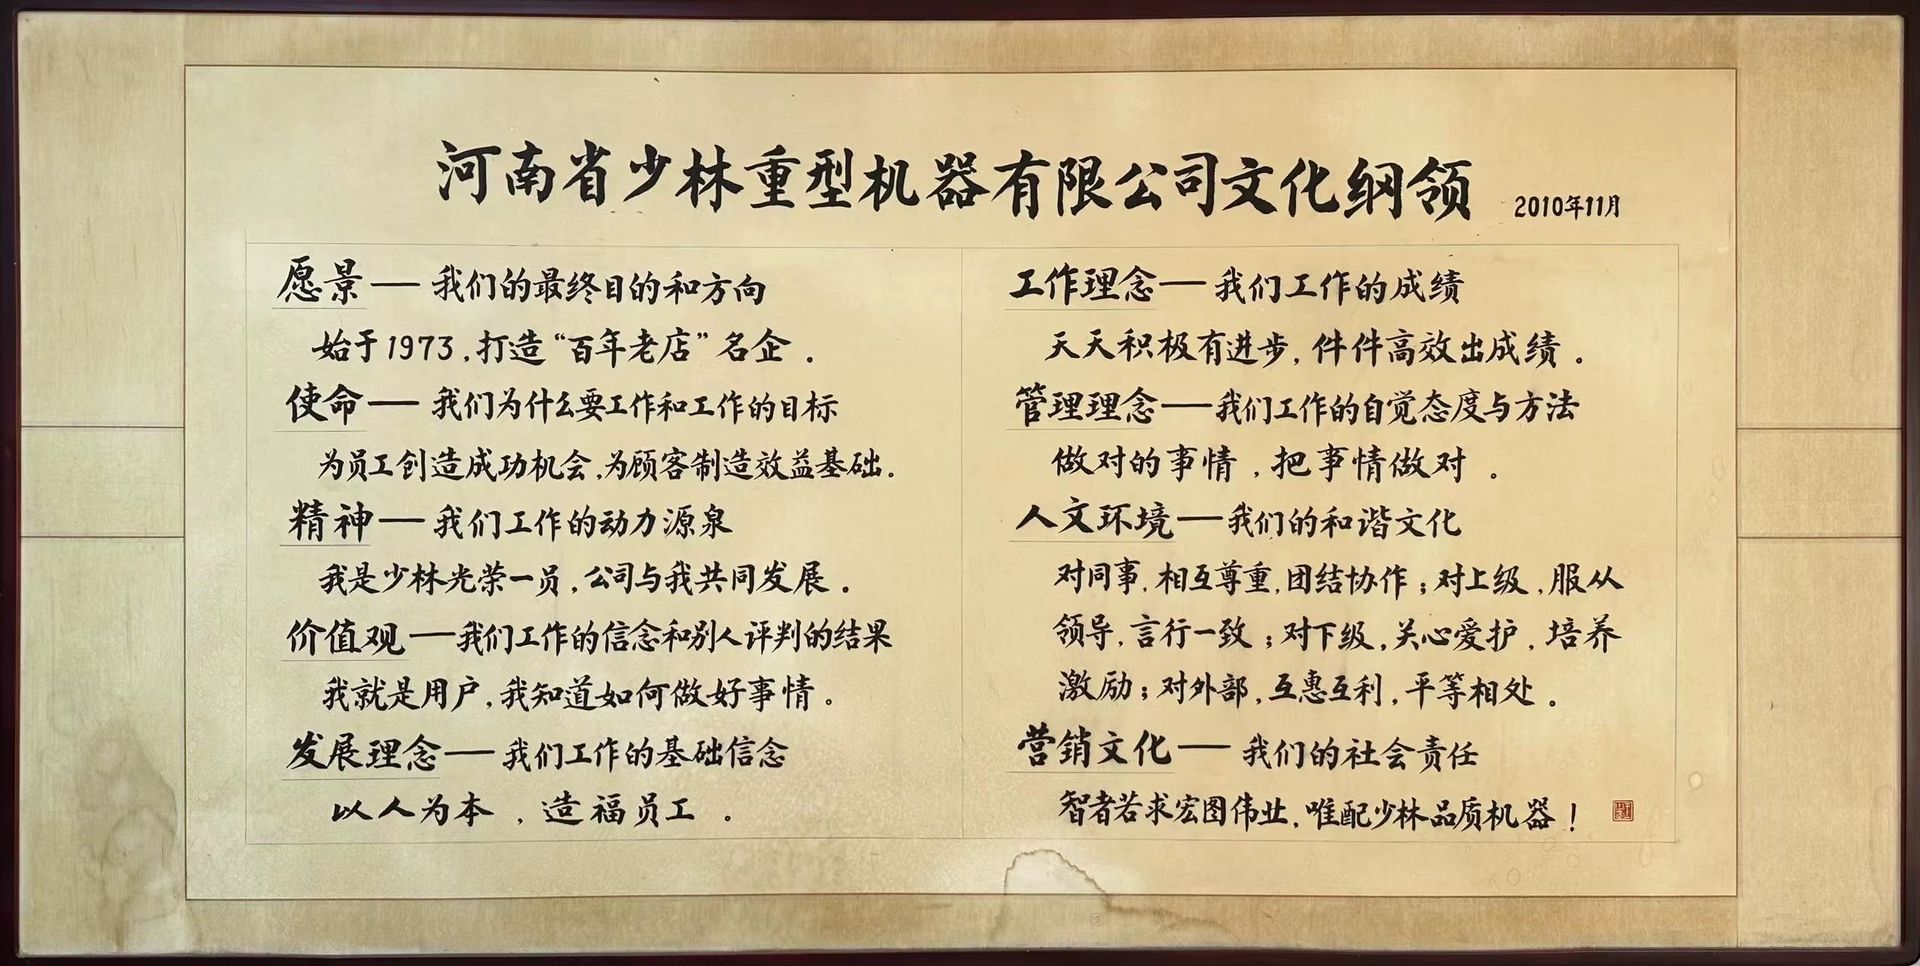 河南省少林重型机器有限公司文化纲领 2010年11月
愿景——我们的最终目的和方向
始于1973,打造“百年老店”名企.
使命——我们为什么要工作和工作的目标
为员工创造成功机会,为顾客制造效益基础.
精神——我们工作的动力源泉
我是少林光荣一员,公司与我共同发展.
价值观——我们工作的信念和别人评判的结果
我就是用户,我知道如何做好事情。
发展理念——我们工作的基础信念
以人为本,造福员工.
工作理念——我们工作的成绩
天天积极有进步,件件高效出成绩.
管理理念——我们工作的自觉态度与方法
做对的事情,把事情做对.
人文环境——我们的和谐文化
对同事,相互尊重,团结协作;对上级,服从
领导,言行一致;对下级,关心爱护,培养
激励;对外部,互惠互利,平等相处.
营销文化——我们的社会责任
智者若求宏图伟业,唯配少林品质机器!